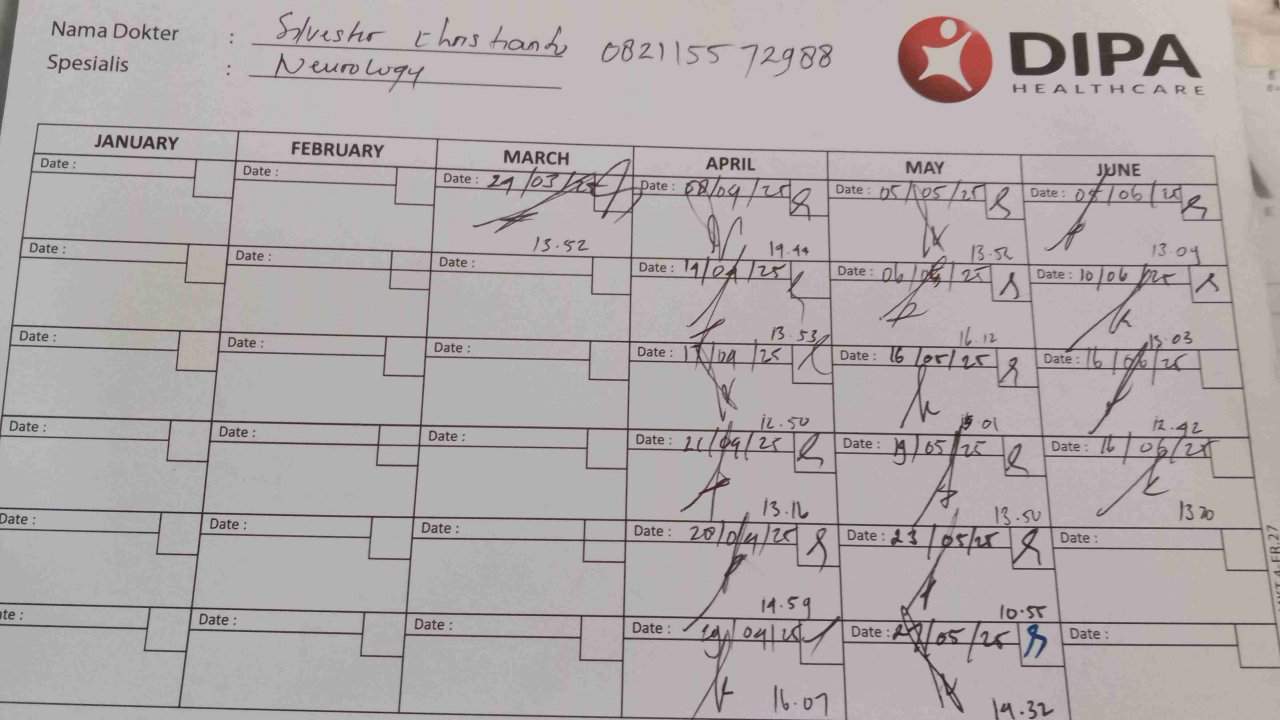 Nama Dokter : Silvester Christianto 082115572988
Spesialis : Neurology
DIPA
HEALTHCARE
JANUARY FEBRUARY MARCH APRIL MAY JUNE
Date : Date : Date : 29/03/25 Date : 08/04/25 Date : 05/05/25 Date : /06/25
13.52 14.44 13.52 13.09
Date : Date : Date : Date : 14/04/25 Date : 06/05/25 Date : 10/06/25
13.53 16.12 13.03
Date : Date : Date : Date : 17/04/25 Date : 16/05/25 Date : 16/06/25
12.50 01 12.42
Date : Date : Date : Date : 21/04/25 Date : 19/05/25 Date : 16/06/25
13.16 13.50 1320
Date : Date : Date : Date : 28/04/25 Date : 23/05/25 Date :
14.59 10.55
Date : Date : Date : 29/04/25 Date : /05/25 Date :
16.07 14.32